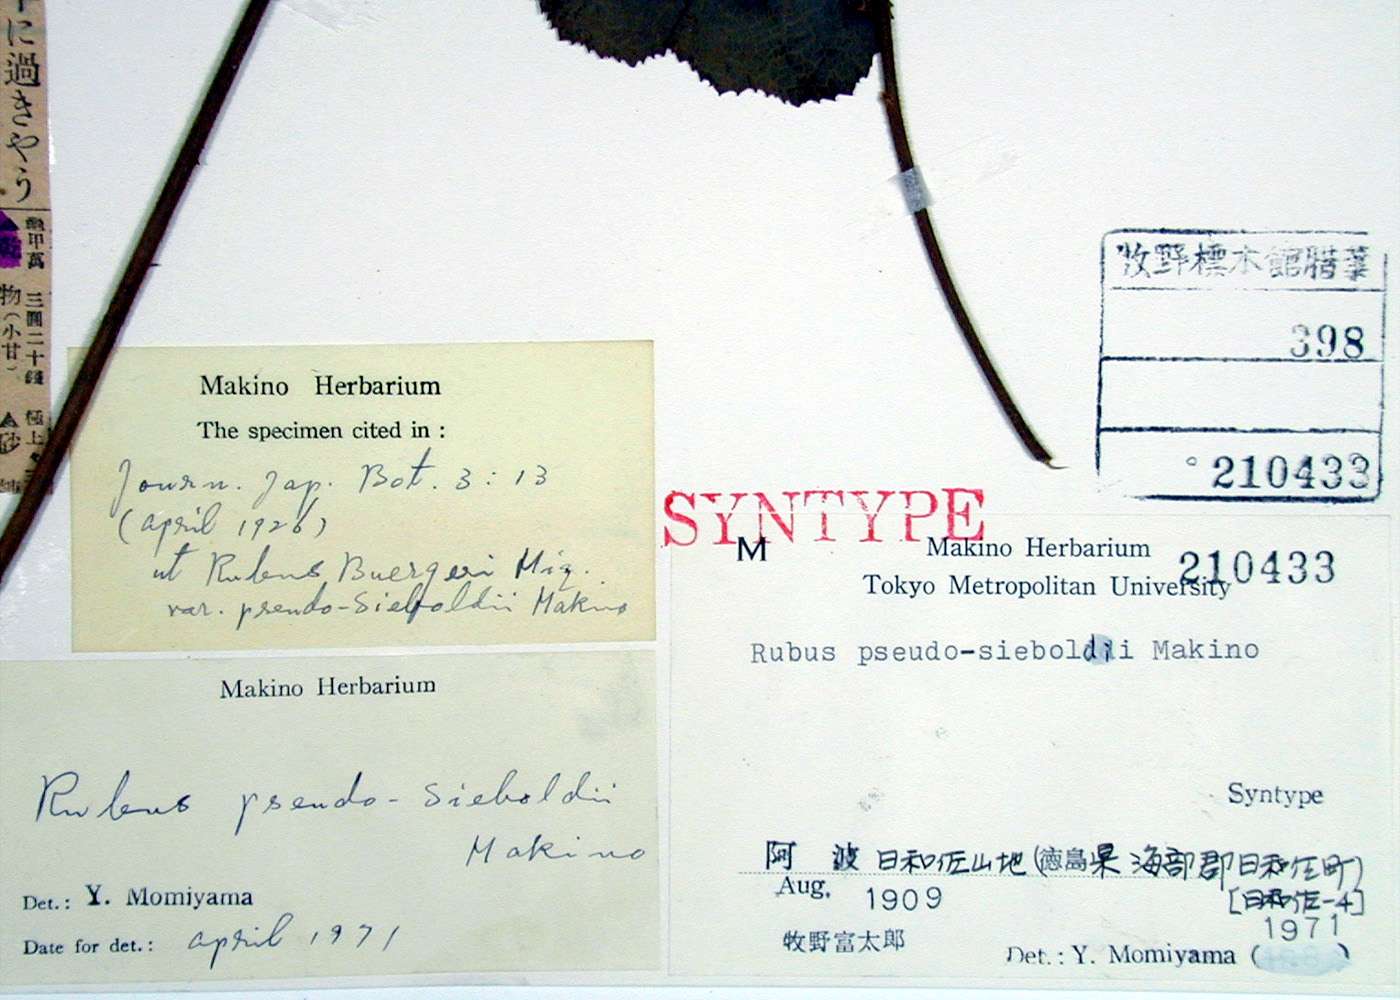 に過きやう
亀甲萬 三圓二十錢 極上
物(小甘)
牧野標本館腊葉
398
210433
Makino Herbarium
The specimen cited in :
Journ. Jap. Bot. 3 : 13
(april 1926)
ut Rubus Buergeri Miq.
var. pseudo-Sieboldii Makino
SYNTYPE
M
Makino Herbarium
210433
Tokyo Metropolitan University
Rubus pseudo-sieboldii Makino
Syntype
阿 波 日和佐山地(徳島県 海部郡日和佐町)
[日和佐-4]
Aug. 1909
1971
牧野富太郎
Det. : Y. Momiyama ( )
Makino Herbarium
Rubus pseudo-Sieboldii
Makino
Det. : Y. Momiyama
Date for det. : april 1971